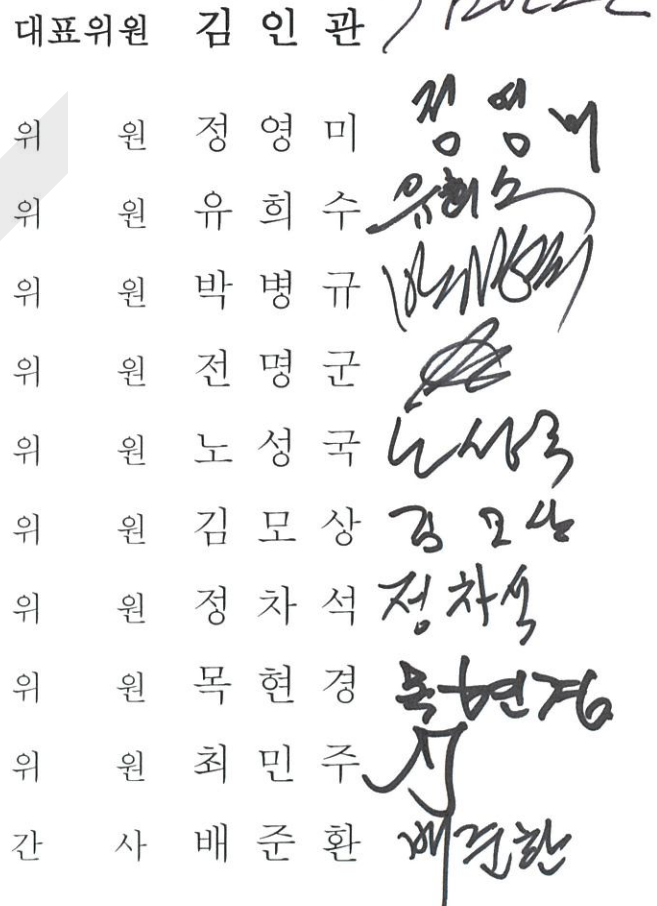 대표위원 김 인 관
위 원 정 영 미 정 영 미
위 원 유 희 수 유희수
위 원 박 병 규
위 원 전 명 군
위 원 노 성 국 노성국
위 원 김 모 상 김 모 상
위 원 정 차 석 정차석
위 원 목 현 경 목현경
위 원 최 민 주
간 사 배 준 환 배준환